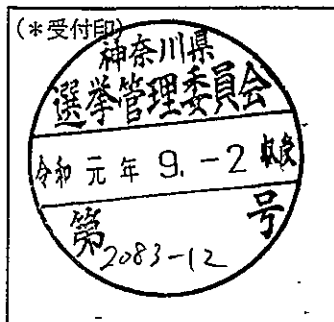 (*受付印)
神奈川県
選挙管理委員会
令和 元 年 9. -2 収受
第 号
2083-12